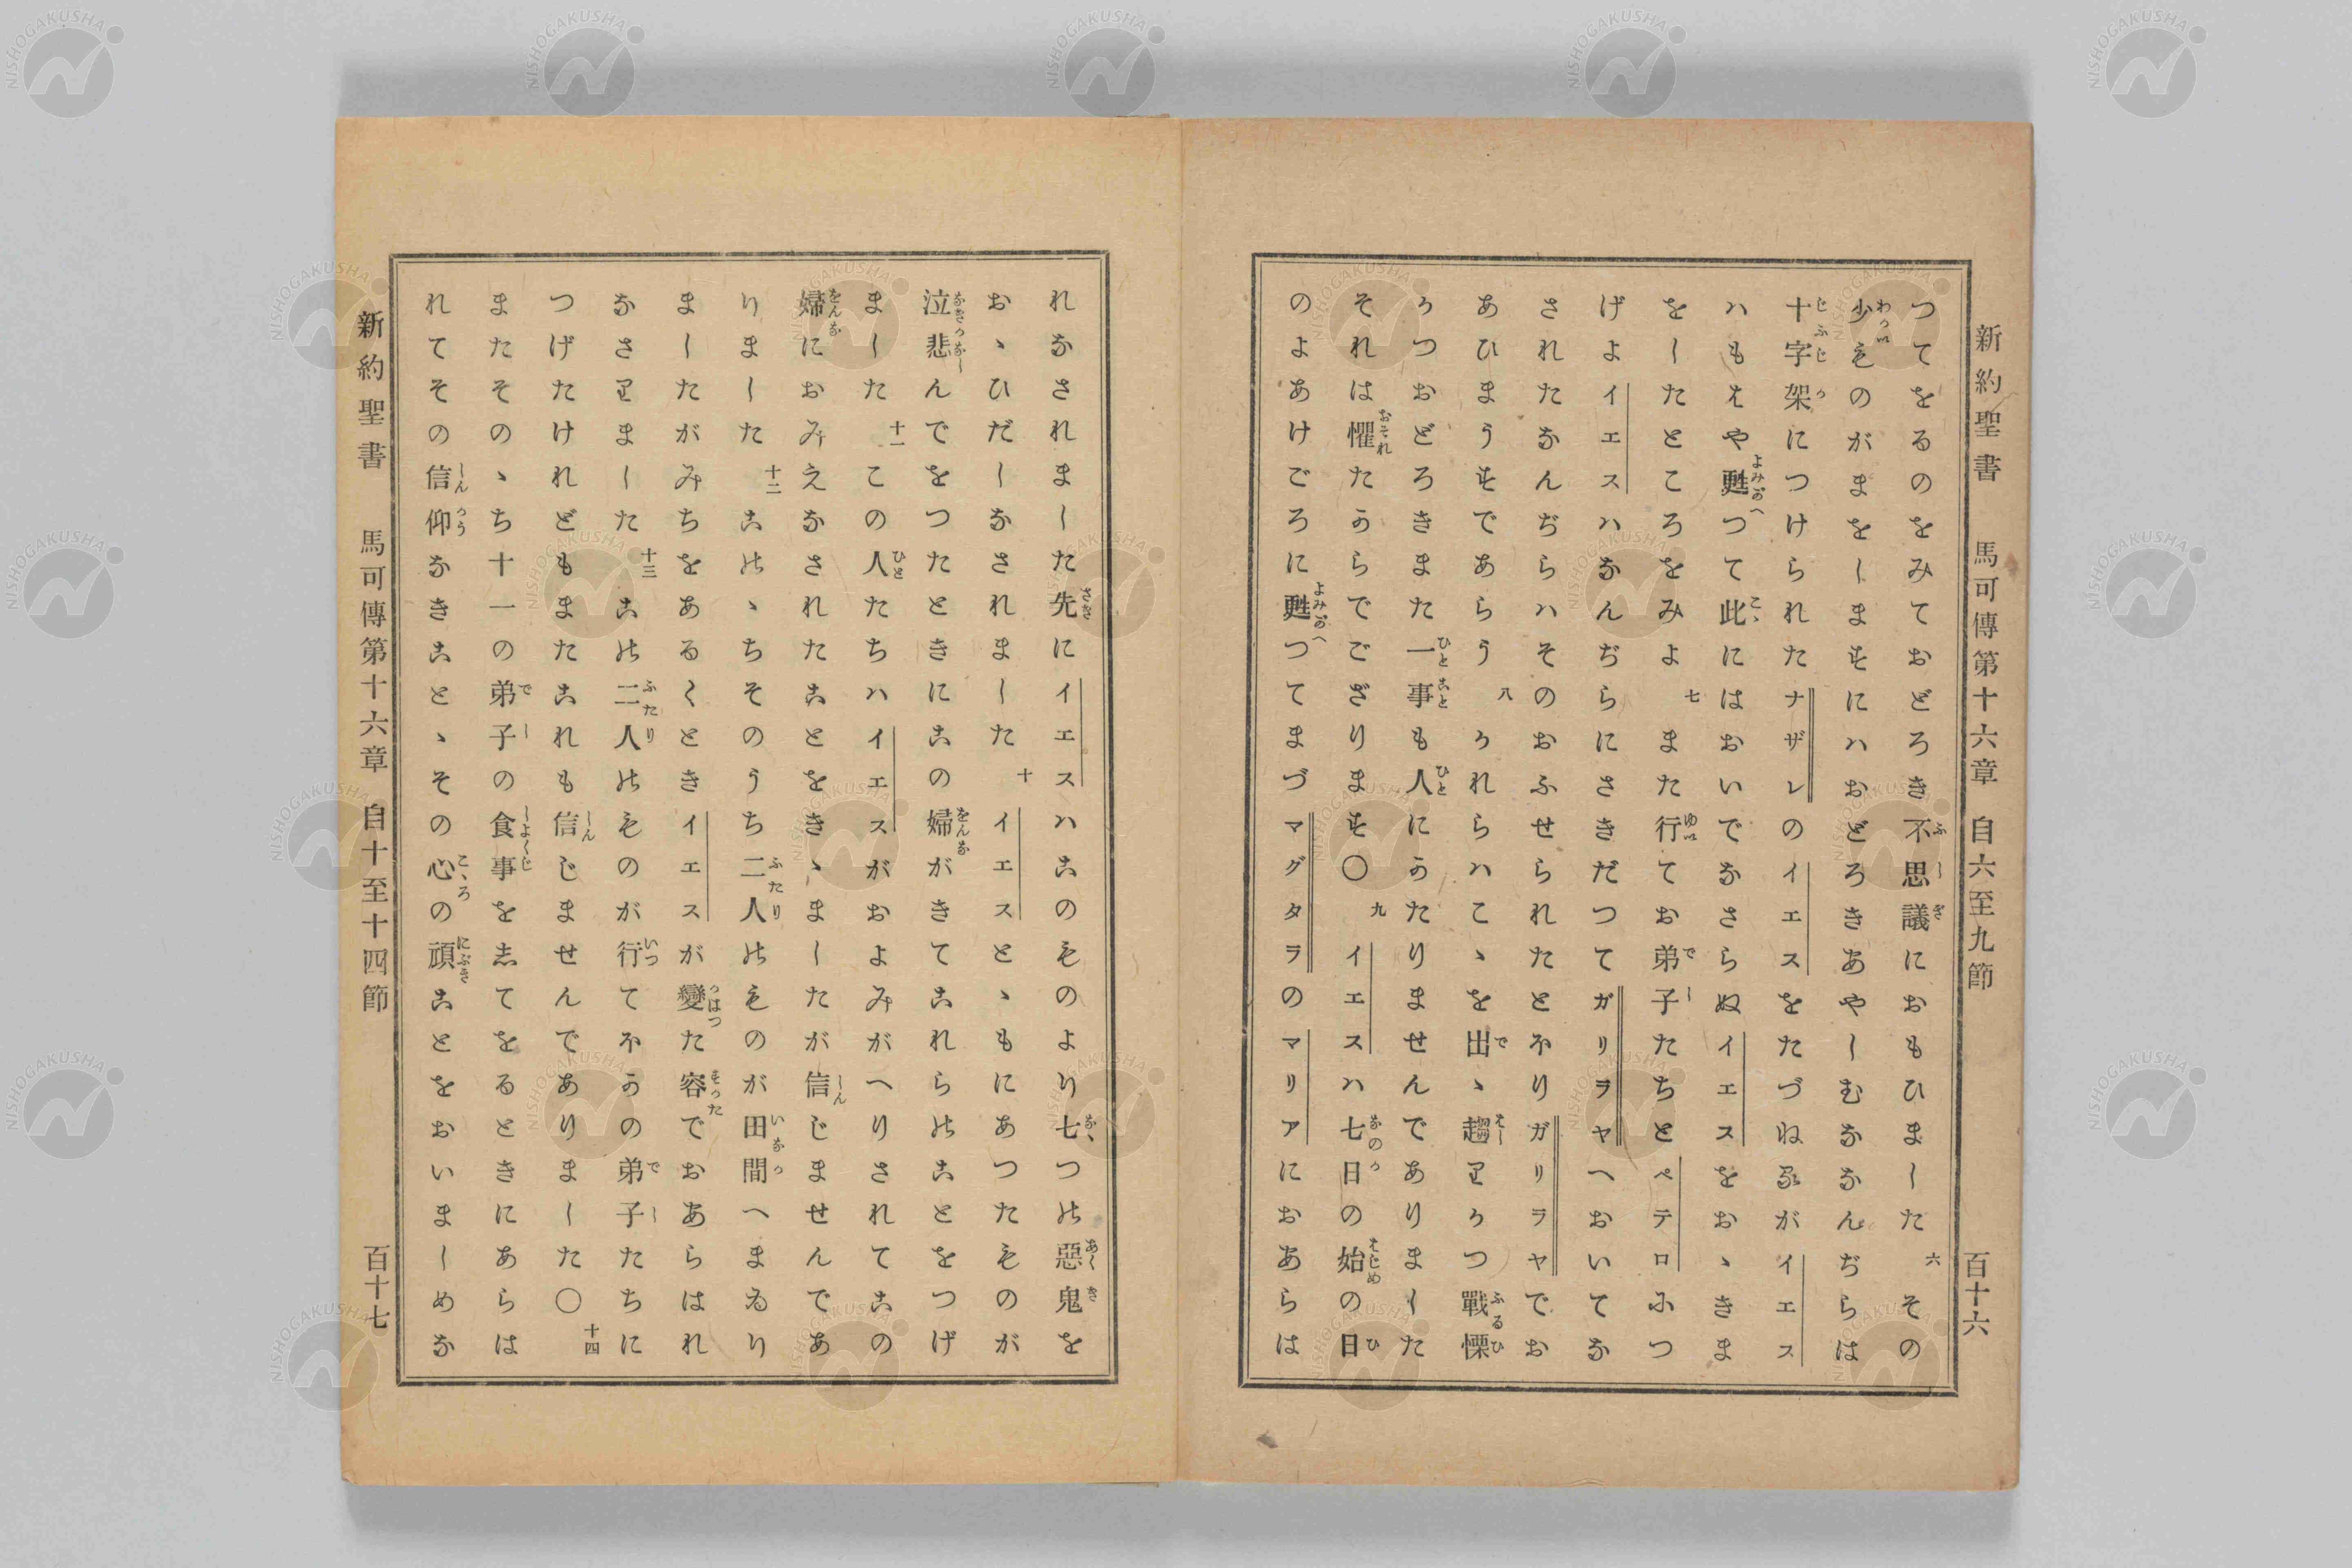 新約聖書 馬可傳第十六章 自六至九節 百十六
つてをるのをみておどろき不思議におもひました 六 その
少ものがまをしますにハおどろきあやしむななんぢらは
十字架につけられたナザレのイエスをたづねるがイエス
ハもはや甦つて此にはおいでなさらぬイエスをおゝきま
をしたところをみよ 七 また行てお弟子たちとペテロにつ
げよイエスハなんぢらにさきだつてガリラヤへおいてな
されたなんぢらハそのおふせられたとほりガリラヤでお
あひまうすであらう 八 かれらハこゝを出ゝ趨りかつ戰慄
かつおどろきまた一事も人にかたりませんでありました
それは懼たからでござります〇 九 イエスハ七日の始の日
のよあけごろに甦つてまづマグタラのマリアにおあらは
れなされました先にイエスハこのものより七つの惡鬼を
おゝひだしなされました 十 イエスとゝもにあつたものが
泣悲んでをつたときにこの婦がきてこれらのことをつげ
ました 十一 この人たちハイエスがおよみがへりされてこの
婦におみえなされたことをきゝましたが信じませんであ
りました 十二 このゝちそのうち二人のものが田間へまゐり
ましたがみちをあるくときイエスが變た容でおあらはれ
なさりました 十三 この二人のものが行てほかの弟子たちに
つげたけれどもまたこれも信じませんでありました〇 十四
またそのゝち十一の弟子の食事をしてをるときにあらは
れてその信仰なきことゝその心の頑ことをおいましめな
新約聖書 馬可傳第十六章 自十至十四節 百十七
NISHOGAKUSHA